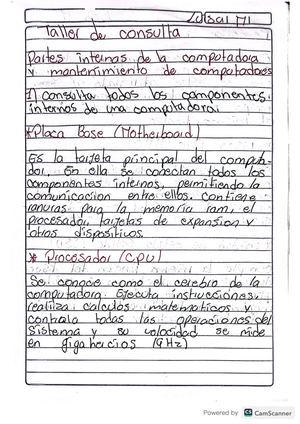 Taller de consulta
Partes internas de la computadora
y mantenimiento de computadores
1) consulta todos los componentes
internos de una computadora:
*Placa Base (Motherboard)
Es la tarjeta principal del computa-
dor, En ella se conectan todos los
componentes internos, permitiendo la
comunicacion entre ellos. contiene
ranuras para la memoria ram, el
procesador, tarjetas de expansion y
otros dispositivos.
* Procesador (Cpu)
Se conoce como el cerebro de la
computadora. Ejecuta instrucciones,
realiza calculos matematicos y
controla todas las operaciones del
Sistema y su velocidad se mide
en gigahercios (GHz)
Powered by CS CamScanner